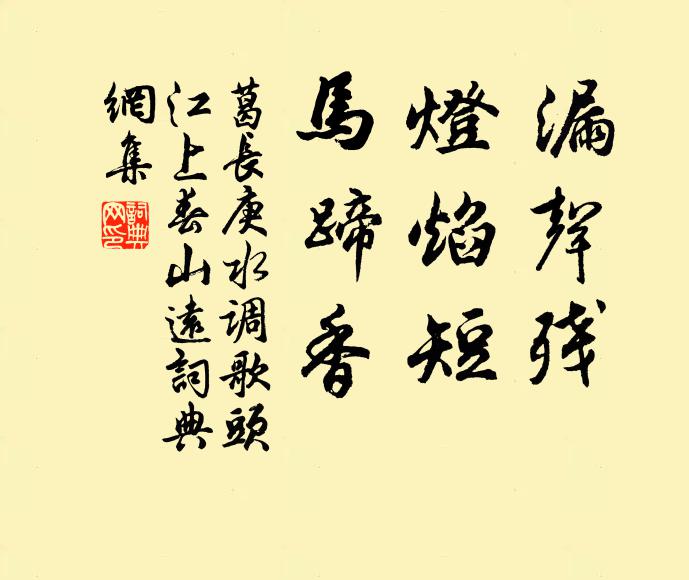 漏聲残
燈焰短
馬蹄香
葛長庚水调歌頭
江上春山遠詞典
網集
詞典
网印